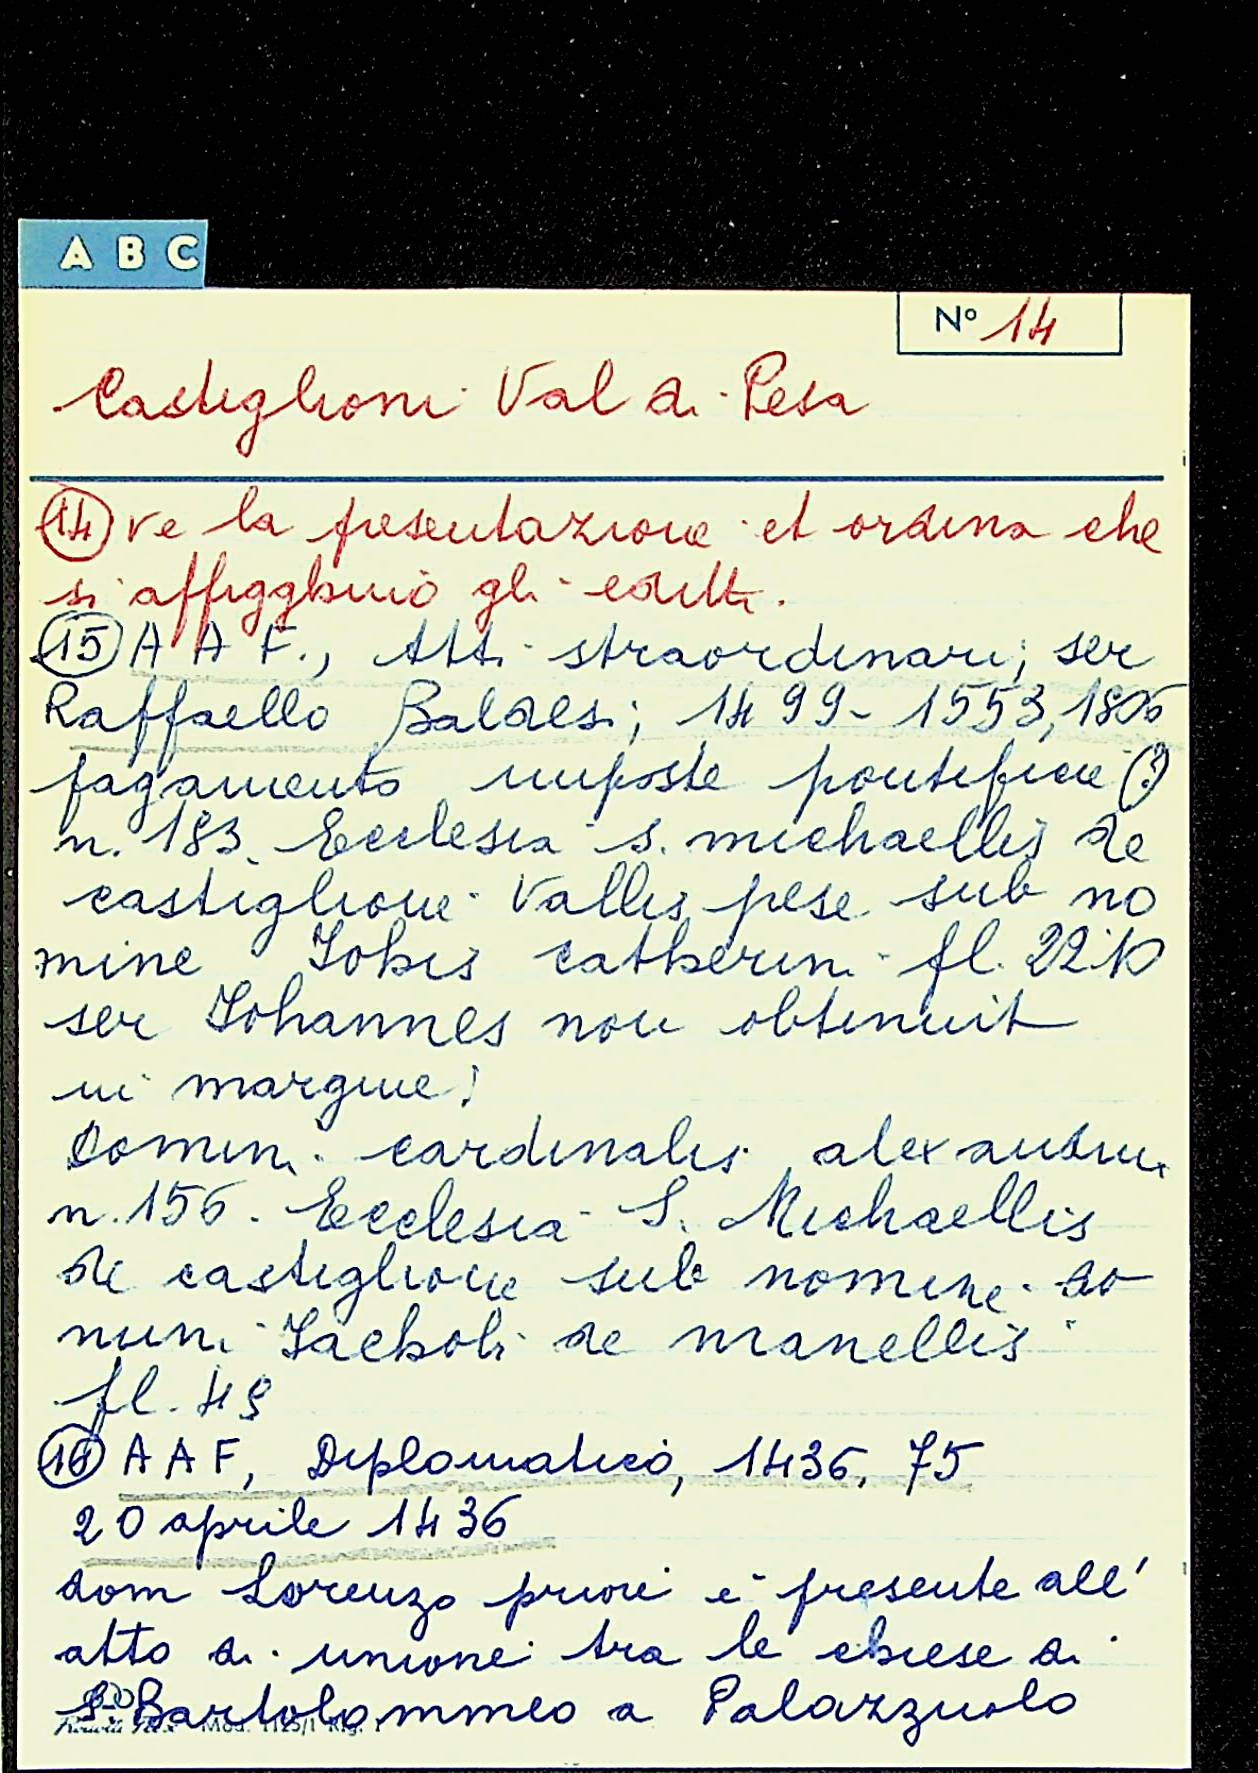 A B C
Nº 14
Castiglioni Val di Pesa
(14) ve la presentazione et ordina che
si affigghino gli editti.
(15) A A F., Atti straordinari; ser
Raffaello Baldesi; 1499-1553, 1806
pagamento imposte pontificie (?)
n. 183. Ecclesia s. michaellis de
castiglione Vallis pese sub no
mine Johis catherini fl. 22.10
ser Johannes non obtinuit
in margine:
Domin. cardinalis alexandrin.
n. 156. Ecclesia S. Michaellis
de castiglione sub nomine do
mini Jachobi de manellis
fl. 49
(16) A A F, Diplomatico, 1436, 75
20 aprile 1436
dom Lorenzo priore è presente all'
atto di unione tra le chiese di
S. Bartolommeo a Palazzuolo
Mod. 1125/1 Rig. 1